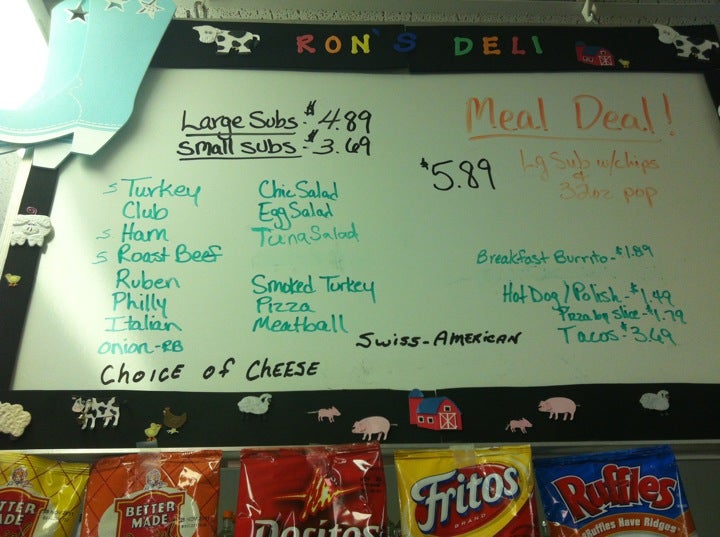 RON'S DELI
Large Subs - $4.89
Small subs - $3.69
Meal Deal!
$5.89
Lg Sub w/chips
&
32oz pop
s Turkey
Club
s Ham
s Roast Beef
Ruben
Philly
Italian
onion-RB
Chic Salad
Egg Salad
Tuna Salad
Smoked Turkey
Pizza
Meatball
Breakfast Burrito - $1.89
Hot Dog/Polish - $1.49
Pizza by slice - $1.79
Tacos $3.69
Swiss-American
Choice of Cheese
BETTER
MADE
BETTER
MADE
Doritos
Fritos
BRAND
Ruffles
Ruffles Have Ridges